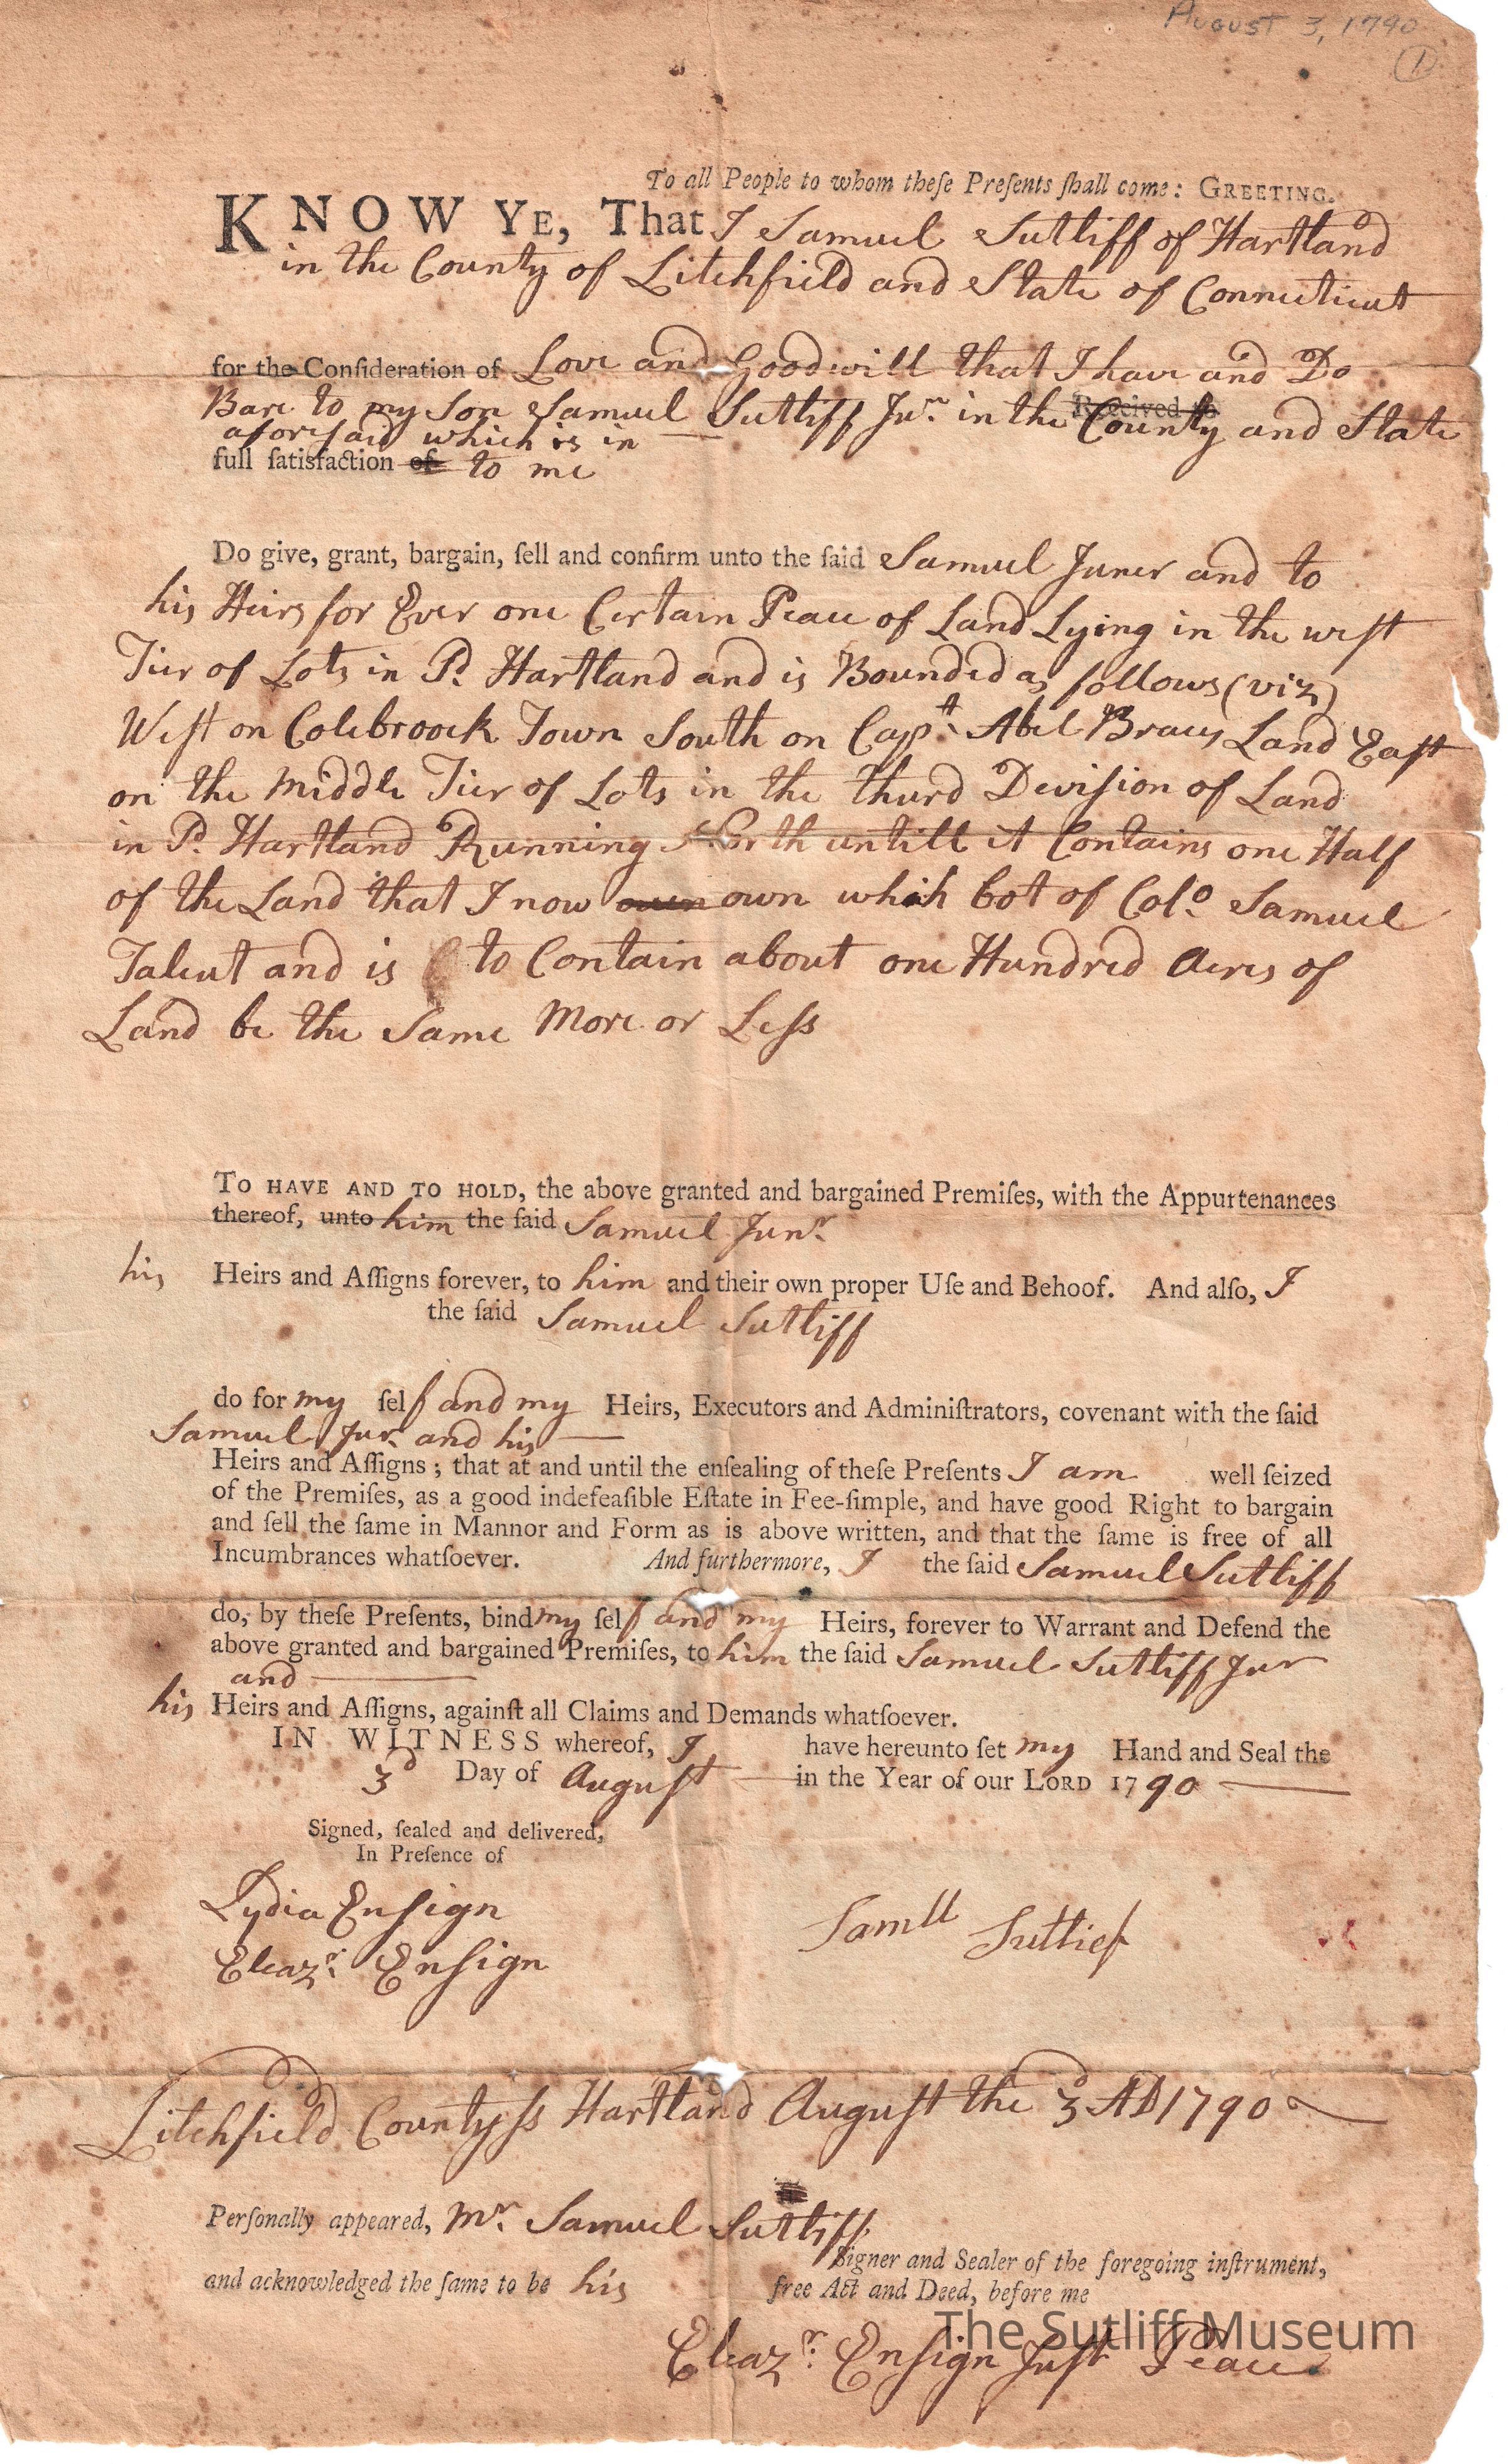 AUGUST 3, 1790
1
To all People to whom theſe Preſents ſhall come: GREETING.
KNOW YE, That I Samuel Sutliff of Hartland
in the County of Litchfield and State of Connecticut
for the Conſideration of Love and Goodwill that I have and Do
Bare to my Son Samuel Sutliff Jur. in the County and State
aforeſaid which is in
full ſatisfaction of to me
Do give, grant, bargain, ſell and confirm unto the ſaid Samuel Juner and to
his Heirs for Ever one Certain Peace of Land Lying in the weſt
Tier of Lots in Sd. Hartland and is Bounded as follows (viz)
Weſt on Colebroock Town South on Capt. Abel Land Eaſt
on the Middle Tier of Lots in the thurd Deviſion of Land
in Sd. Hartland Running North untill it Contains one Half
of the Land that I now own own which bot of Colo. Samuel
Talcut and is to Contain about one Hundred Acres of
Land be the Same More or Leſs
TO HAVE AND TO HOLD, the above granted and bargained Premiſes, with the Appurtenances
thereof, unto him the ſaid Samuel Junr.
his Heirs and Aſſigns forever, to him and their own proper Uſe and Behoof. And alſo, I
the ſaid Samuel Sutliff
do for my ſelf and my Heirs, Executors and Adminiſtrators, covenant with the ſaid
Samuel Jur. and his
Heirs and Aſſigns; that at and until the enſealing of theſe Preſents I am well ſeized
of the Premiſes, as a good indefeaſible Eſtate in Fee-ſimple, and have good Right to bargain
and ſell the ſame in Mannor and Form as is above written, and that the ſame is free of all
Incumbrances whatſoever. And furthermore, I the ſaid Samuel Sutliff
do, by theſe Preſents, bind my ſelf and my Heirs, forever to Warrant and Defend the
above granted and bargained Premiſes, to him the ſaid Samuel Sutliff Jur
and
his Heirs and Aſſigns, againſt all Claims and Demands whatſoever.
IN WITNESS whereof, I have hereunto ſet my Hand and Seal the
3d Day of Auguſt in the Year of our LORD 1790
Signed, ſealed and delivered,
In Preſence of
Lydia Enſign
Eleazr. Enſign
Samll Sutlief
Litchfield County ſs Hartland Auguſt the 3d AD 1790
Perſonally appeared, Mr. Samuel Sutliff
Signer and Sealer of the foregoing inſtrument,
and acknowledged the ſame to be his free Act and Deed, before me
Eleazr. Enſign Juſt Peace
The Sutliff Museum